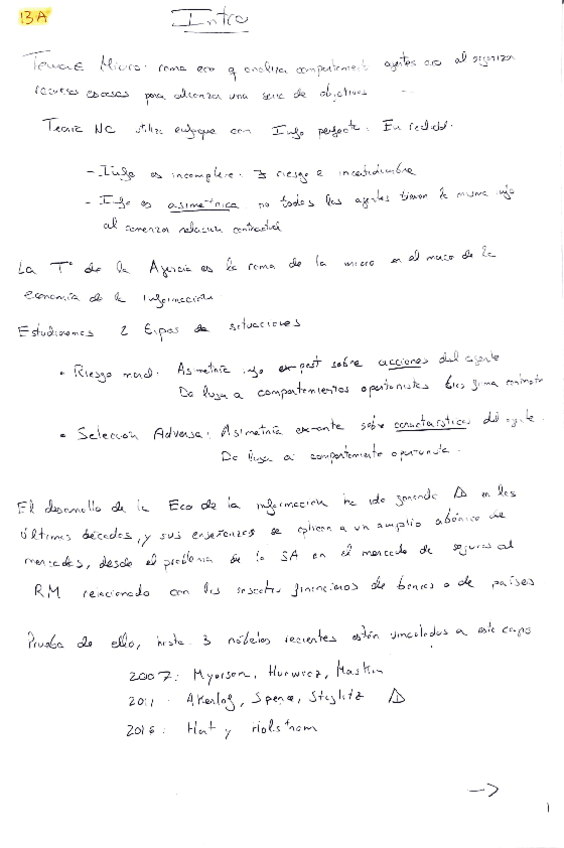 13A
Intro
Micro: rama eco q analiza comportamient agentes eco al
recursos escasos para alcanzar una serie de objetivos
Teoría NC utiliza enfoque con Info perfecta. En realidad:
- Info es incompleta: ∃ riesgo e incertidumbre
- Info es asimétrica no todos los agentes tienen la misma info
al comenzar relación contractual
La Tª de la Agencia es la rama de la micro en el marco de la
economía de la Información
Estudiaremos 2 tipos de situaciones
• Riesgo moral: Asimetría info ex-post sobre acciones del agente
Da lugar a comportamientos oportunistas
• Selección Adversa: Asimetría ex-ante sobre características del agente.
Da lugar a comportamiento oportunista.
El desarrollo de la Eco de la información ha ido ganando en las
últimas décadas, y sus enseñanzas se aplican a un amplio abanico de
mercados, desde el problema de la SA en el mercado de seguros al
RM relacionado con los rescates financieros de bancos o de países
Prueba de ello, hasta 3 nóbeles recientes están vinculados a este campo
2007: Myerson, Hurwicz, Maskin
2011: Akerlof, Spence, Stiglitz
2016: Hart y Holstrom
→
1